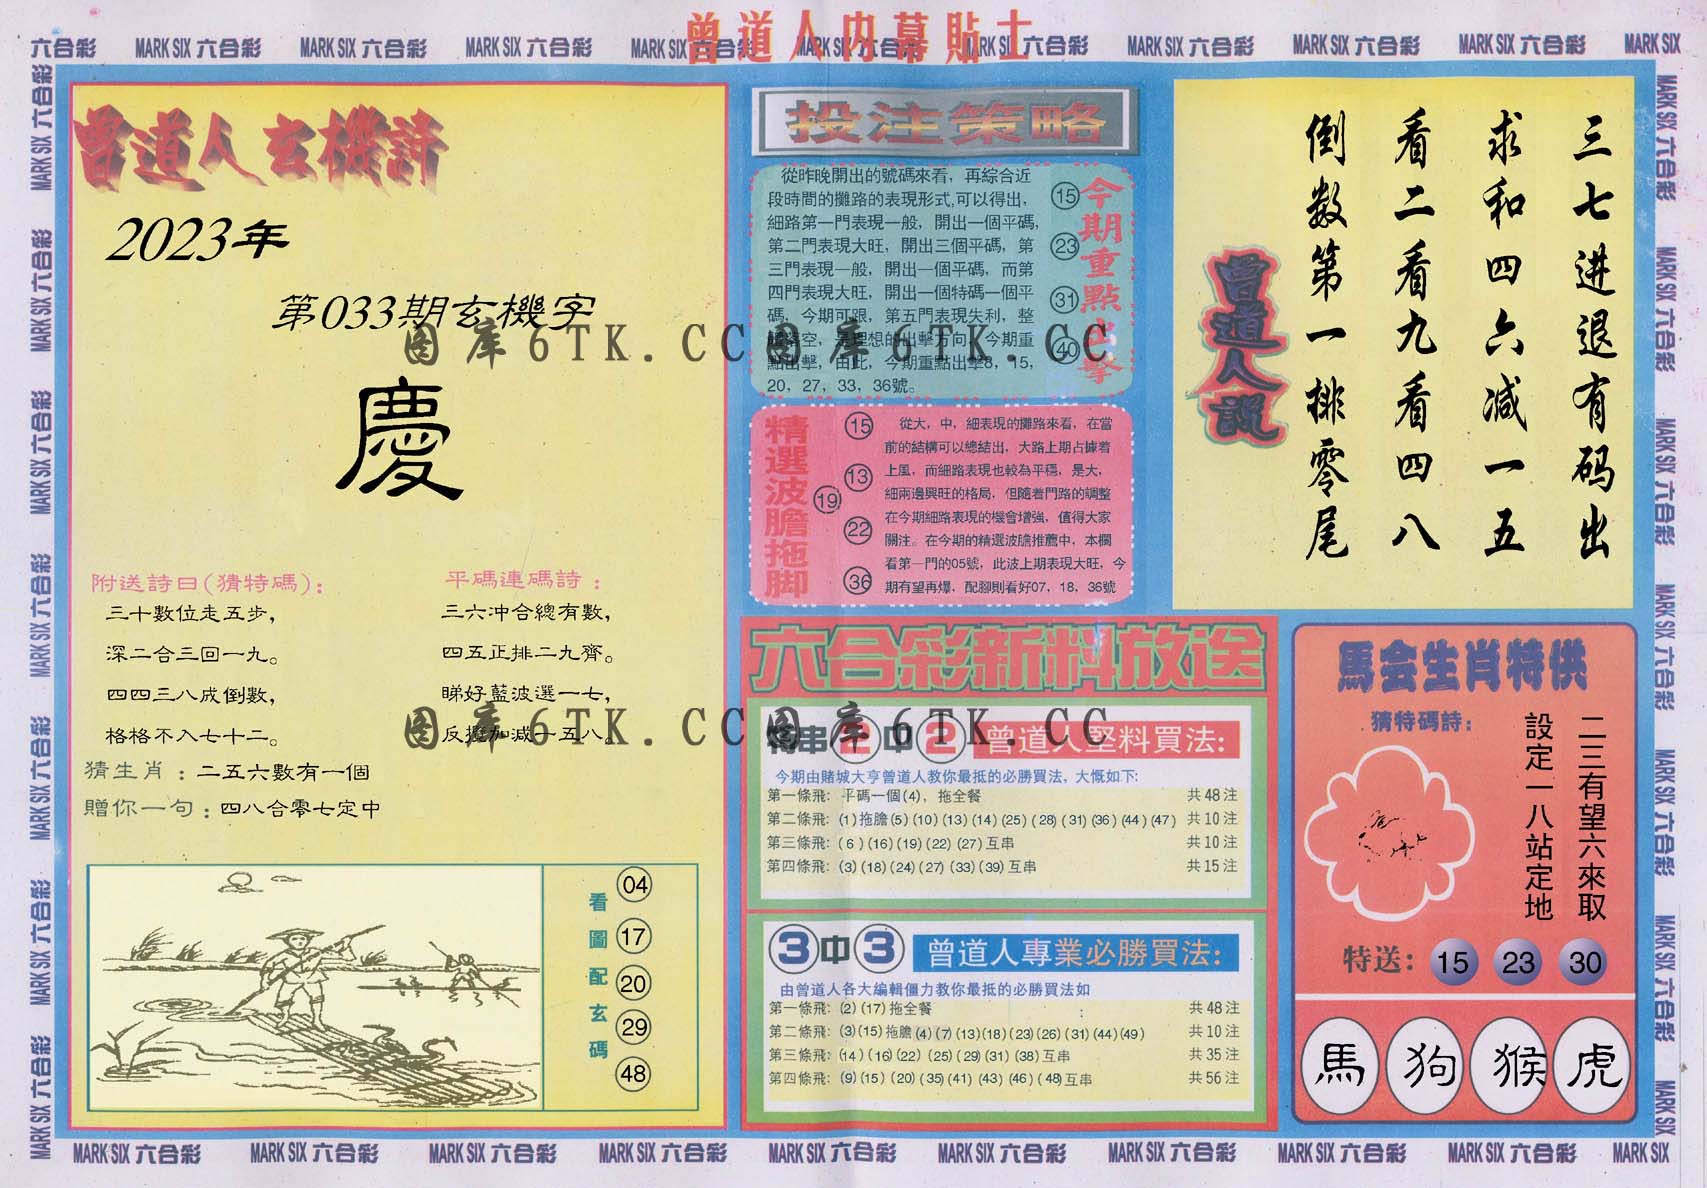 曾道人内幕貼士
六合彩 MARK SIX 六合彩 MARK SIX 六合彩 MARK SIX 六合彩 MARK SIX 六合彩 MARK SIX 六合彩 MARK SIX 六合彩 MARK SIX 六合彩 MARK SIX 六合彩 MARK SIX 六合彩 MARK SIX
曾道人玄機詩
2023年
第033期玄機字
慶
附送詩曰(猜特碼):
三十數位走五步,
深二合三回一九。
四四三八成倒數,
格格不入七十二。
平碼連碼詩:
三六冲合總有數,
四五正排二九齊。
睇好藍波選一七,
反搋加減十五八。
猜生肖:二五六數有一個
贈你一句:四八合零七定中
看圖配玄碼
04
17
20
29
48
投注策略
從昨晚開出的號碼來看,再綜合近
段時間的攤路的表現形式,可以得出,
細路第一門表現一般,開出一個平碼,
第二門表現大旺,開出三個平碼,第
三門表現一般,開出一個平碼,而第
四門表現大旺,開出一個特碼一個平
碼,今期可跟,第五門表現失利,整
體落空,是理想的出擊方向,今期重
點出擊,由此,今期重點出擊8,15,
20,27,33,36號。
今期重點出擊
15
23
31
40
精選波膽拖脚
15
13
19
22
36
從大,中,細表現的攤路來看,在當
前的結構可以總結出,大路上期占據着
上風,而細路表現也較為平穩,是大,
細兩邊興旺的格局,但隨着門路的調整
在今期細路表現的機會增強,值得大家
關注。在今期的精選波膽推薦中,本欄
看第一門的05號,此波上期表現大旺,今
期有望再爆,配腳則看好07,18,36號
六合彩新料放送
特串2中2 曾道人堅料買法:
今期由賭城大亨曾道人教你最抵的必勝買法,大慨如下:
第一條飛: 平碼一個(4),拖全餐 共48注
第二條飛: (1)拖膽(5)(10)(13)(14)(25)(28)(31)(36)(44)(47) 共10注
第三條飛: (6)(16)(19)(22)(27)互串 共10注
第四條飛: (3)(18)(24)(27)(33)(39)互串 共15注
3中3 曾道人專業必勝買法:
由曾道人各大編輯僵力教你最抵的必勝買法如
第一條飛: (2)(17)拖全餐 : 共48注
第二條飛: (3)(15)拖膽(4)(7)(13)(18)(23)(26)(31)(44)(49) 共10注
第三條飛: (14)(16)(22)(25)(29)(31)(38)互串 共35注
第四條飛: (9)(15)(20)(35)(41)(43)(46)(48)互串 共56注
三七进退有码出
求和四六减一五
看二看九看四八
倒数第一排零尾
曾道人說
馬会生肖特供
猜特碼詩:
二三有望六來取
設定一八站定地
特送: 15 23 30
馬 狗 猴 虎
图库6TK.CC图库6TK.CC
图库6TK.CC图库6TK.CC
MARK SIX 六合彩 MARK SIX 六合彩 MARK SIX 六合彩 MARK SIX 六合彩 MARK SIX 六合彩 MARK SIX 六合彩 MARK SIX 六合彩
MARK SIX 六合彩 MARK SIX 六合彩 MARK SIX 六合彩 MARK SIX 六合彩 MARK SIX 六合彩 MARK SIX 六合彩 MARK SIX
MARK SIX 六合彩 MARK SIX 六合彩 MARK SIX 六合彩 MARK SIX 六合彩 MARK SIX 六合彩 MARK SIX 六合彩 MARK SIX 六合彩 MARK SIX 六合彩 MARK SIX 六合彩 MARK SIX